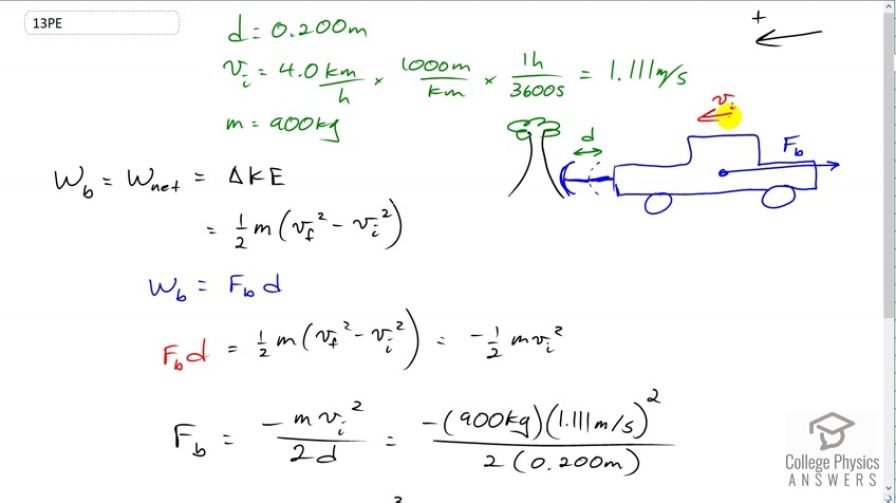 13PE
+
d = 0.200m
v_i = 4.0 km/h × 1000m/km × 1h/3600s = 1.111 m/s
m = 900kg
v_i
d
F_b
W_b = W_net = ΔKE
= 1/2 m(v_f² - v_i²)
W_b = F_b d
F_b d = 1/2 m(v_f² - v_i²) = -1/2 mv_i²
F_b = -mv_i²/2d = -(900kg)(1.111m/s)²/2(0.200m)
College Physics
ANSWERS